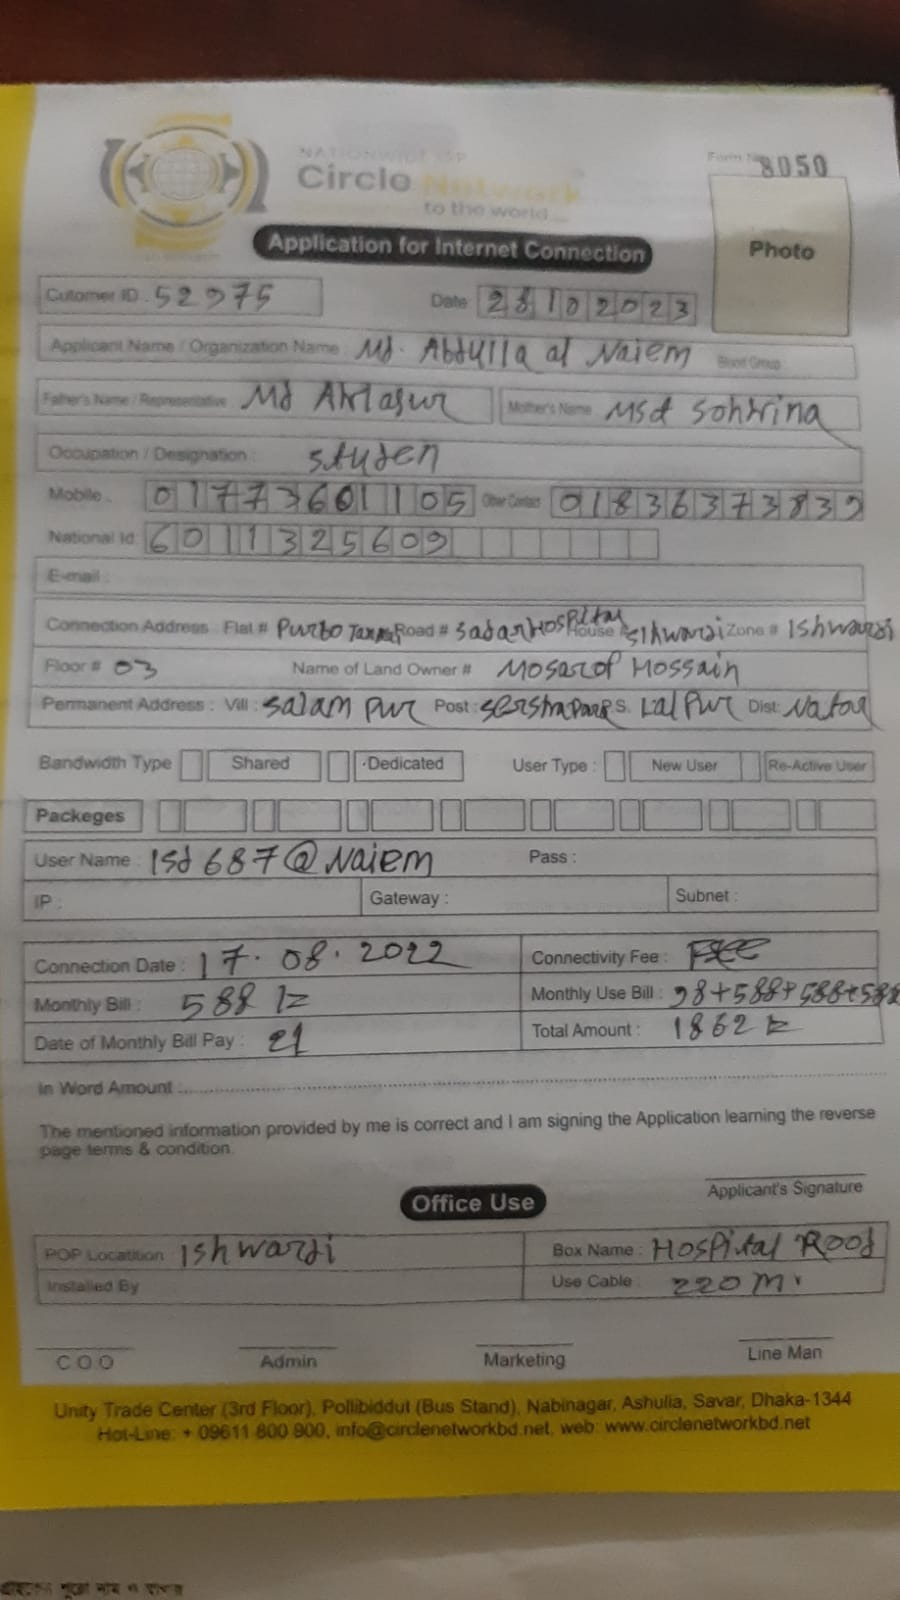 NATIONWIDE ISP
Circle Network
to the world
Form No 8050
Photo
Application for Internet Connection
Cutomer ID. 52975 Date: 28102023
Applicant Name / Organization Name: Md. Abdulla al Naiem Blood Group:
Father's Name / Representative Md Aktasur Mother's Name Msd Sohkrina
Occupation / Designation: Studen
Mobile: 01773601105 Other Contact 01836373839
National Id: 6011325609
E-mail:
Connection Address: Flat # Purbo Road # Sadar Hospital House # Zone # Ishwardi
Floor # 03 Name of Land Owner # Mosarof Hossain
Permanent Address: Vill: Salam Pur Post: P.S. Lal Pur Dist: Nator
Bandwidth Type Shared Dedicated User Type: New User Re-Active User
Packeges
User Name: Isd687@Naiem Pass:
IP: Gateway: Subnet:
Connection Date: 17.08.2022 Connectivity Fee: Free
Monthly Bill: 588 tk Monthly Use Bill: 98+588+588+588
Date of Monthly Bill Pay: 21 Total Amount: 1862 tk
In Word Amount:
The mentioned information provided by me is correct and I am signing the Application learning the reverse
page terms & condition.
Applicant's Signature
Office Use
POP Locatition Ishwardi Box Name: Hospital Rood
Installed By Use Cable: 220 M.
C O O Admin Marketing Line Man
Unity Trade Center (3rd Floor), Pollibiddut (Bus Stand), Nabinagar, Ashulia, Savar, Dhaka-1344
Hot-Line: + 09611 800 900, info@circlenetworkbd.net, web: www.circlenetworkbd.net